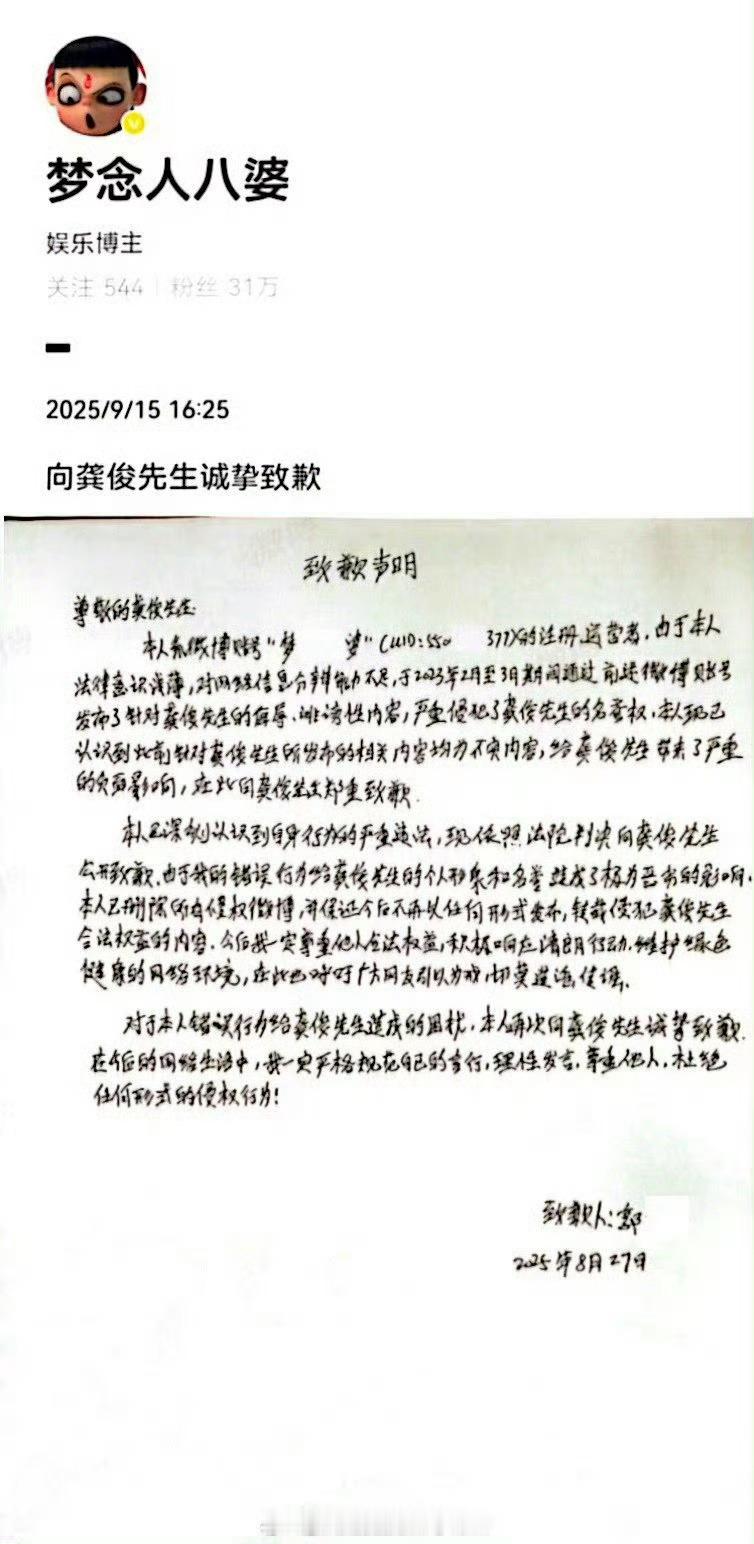 梦念人八婆
娱乐博主
关注 544 | 粉丝 31万
2025/9/15 16:25
向龚俊先生诚挚致歉
致歉声明
尊敬的龚俊先生:
本人系微博账号“梦 婆”(UID:550 377)的注册运营者,由于本人
法律意识浅薄,对网络信息分辨能力不足,于2023年2月至3月期间通过前述微博账号
发布了针对龚俊先生的侮辱、诽谤性内容,严重侵犯了龚俊先生的名誉权,本人现已
认识到此前针对龚俊先生所发布的相关内容均为不实内容,给龚俊先生带来了严重
的负面影响,在此向龚俊先生郑重致歉.
本人已深刻认识到自身行为的严重违法,现依照法院判决向龚俊先生
公开致歉.由于我的错误行为给龚俊先生的个人形象和名誉造成了极为恶劣的影响.
本人已删除所有侵权微博,并保证今后不再以任何形式发布,转载侵犯龚俊先生
合法权益的内容.今后我一定尊重他人合法权益,积极响应清朗行动,维护绿色
健康的网络环境,在此也呼吁广大网友引以为戒,切莫造谣传谣.
对于本人错误行为给龚俊先生造成的困扰,本人再次向龚俊先生诚挚致歉.
在今后的网络生活中,我一定严格规范自己的言行,理性发言.尊重他人.杜绝
任何形式的侵权行为!
致歉人:郭
2025年8月27日